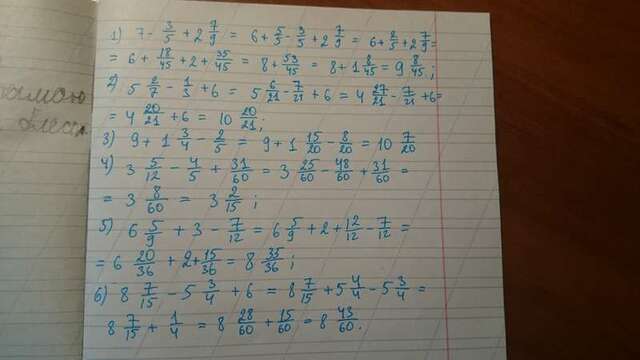 1) 7 - 3/5 + 2 7/9 = 6 + 5/5 - 3/5 + 2 7/9 = 6 + 2/5 + 2 7/9 =
= 6 + 18/45 + 2 + 35/45 = 8 + 53/45 = 8 + 1 8/45 = 9 8/45 ;
2) 5 2/7 - 1/3 + 6 = 5 6/21 - 7/21 + 6 = 4 27/21 - 7/21 + 6 =
= 4 20/21 + 6 = 10 20/21 ;
3) 9 + 1 3/4 - 2/5 = 9 + 1 15/20 - 8/20 = 10 7/20
4) 3 5/12 - 4/5 + 31/60 = 3 25/60 - 48/60 + 31/60 =
= 3 8/60 = 3 2/15 ;
5) 6 5/9 + 3 - 7/12 = 6 5/9 + 2 + 12/12 - 7/12 =
= 6 20/36 + 2 + 15/36 = 8 35/36 ;
6) 8 7/15 - 5 3/4 + 6 = 8 7/15 + 5 4/4 - 5 3/4 =
8 7/15 + 1/4 = 8 28/60 + 15/60 = 8 43/60 .